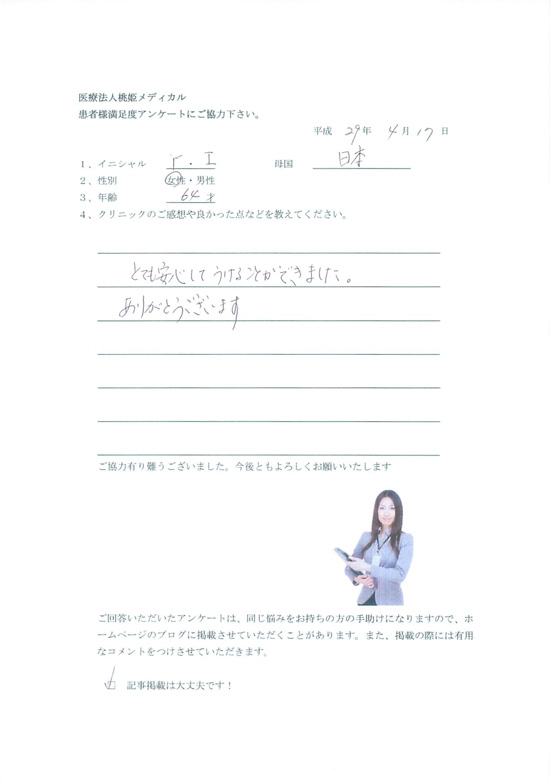 医療法人桃姫メディカル
患者様満足度アンケートにご協力下さい。
平成 29年 4月17日
1、イニシャル r.I 母国 日本
2、性別 女性・男性
3、年齢 64才
4、クリニックのご感想や良かった点などを教えてください。
とても安心してうけることができました。
ありがとうございます
ご協力有り難うございました。今後ともよろしくお願いいたします
ご回答いただいたアンケートは、同じ悩みをお持ちの方の手助けになりますので、ホ
ームページのブログに掲載させていただくことがあります。また、掲載の際には有用
なコメントをつけさせていただきます。
記事掲載は大丈夫です！